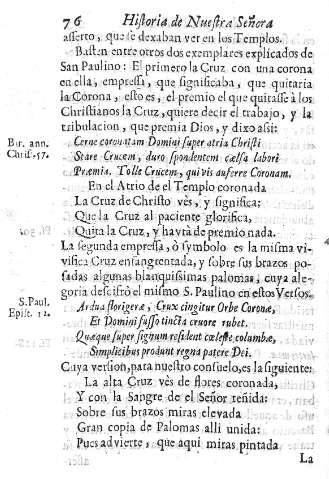 76 Historia de Nuestra Señora
asserto, que se dexaban ver en los Templos.
Basten entre otros dos exemplares explicados de
San Paulino: El primero la Cruz con una corona
en ella, empressa, que significaba, que quitaria
la Corona, esto es, el premio el que quitasse à los
Christianos la Cruz, quiere decir el trabajo, y la
tribulacion, que premia Dios, y dixo assi:
Bar. ann.
Chris. 57.
Cerne coronatam Domini super atria Christi
Stare Crucem, duro spondentem cælsa labori
Præmia. Tolle Crucem, qui vis auferre Coronam.
En el Atrio de el Templo coronada
La Cruz de Christo vès, y significa;
Que la Cruz al paciente glorifica,
Quita la Cruz, y havrà de premio nada.
La segunda empressa, ò symbolo es la misma vi-
vifica Cruz ensangrentada, y sobre sus brazos po-
sadas algunas blanquissimas palomas, cuya ale-
goria descifrò el mismo S. Paulino en estos Versos.
S. Paul.
Epist. 12.
Ardua florigeræ, Crux cingitur Orbe Coronæ,
Et Domini fusso tincta cruore rubet.
Quæque super signum resident cæleste columbæ,
Simplicibus produnt regna patere Dei.
Cuya version, para nuestro consuelo, es la siguiente:
La alta Cruz vès de flores coronada,
Y con la Sangre de el Señor teñida:
Sobre sus brazos miras elevada
Gran copia de Palomas alli unida:
Pues advierte, que aqui miras pintada
La